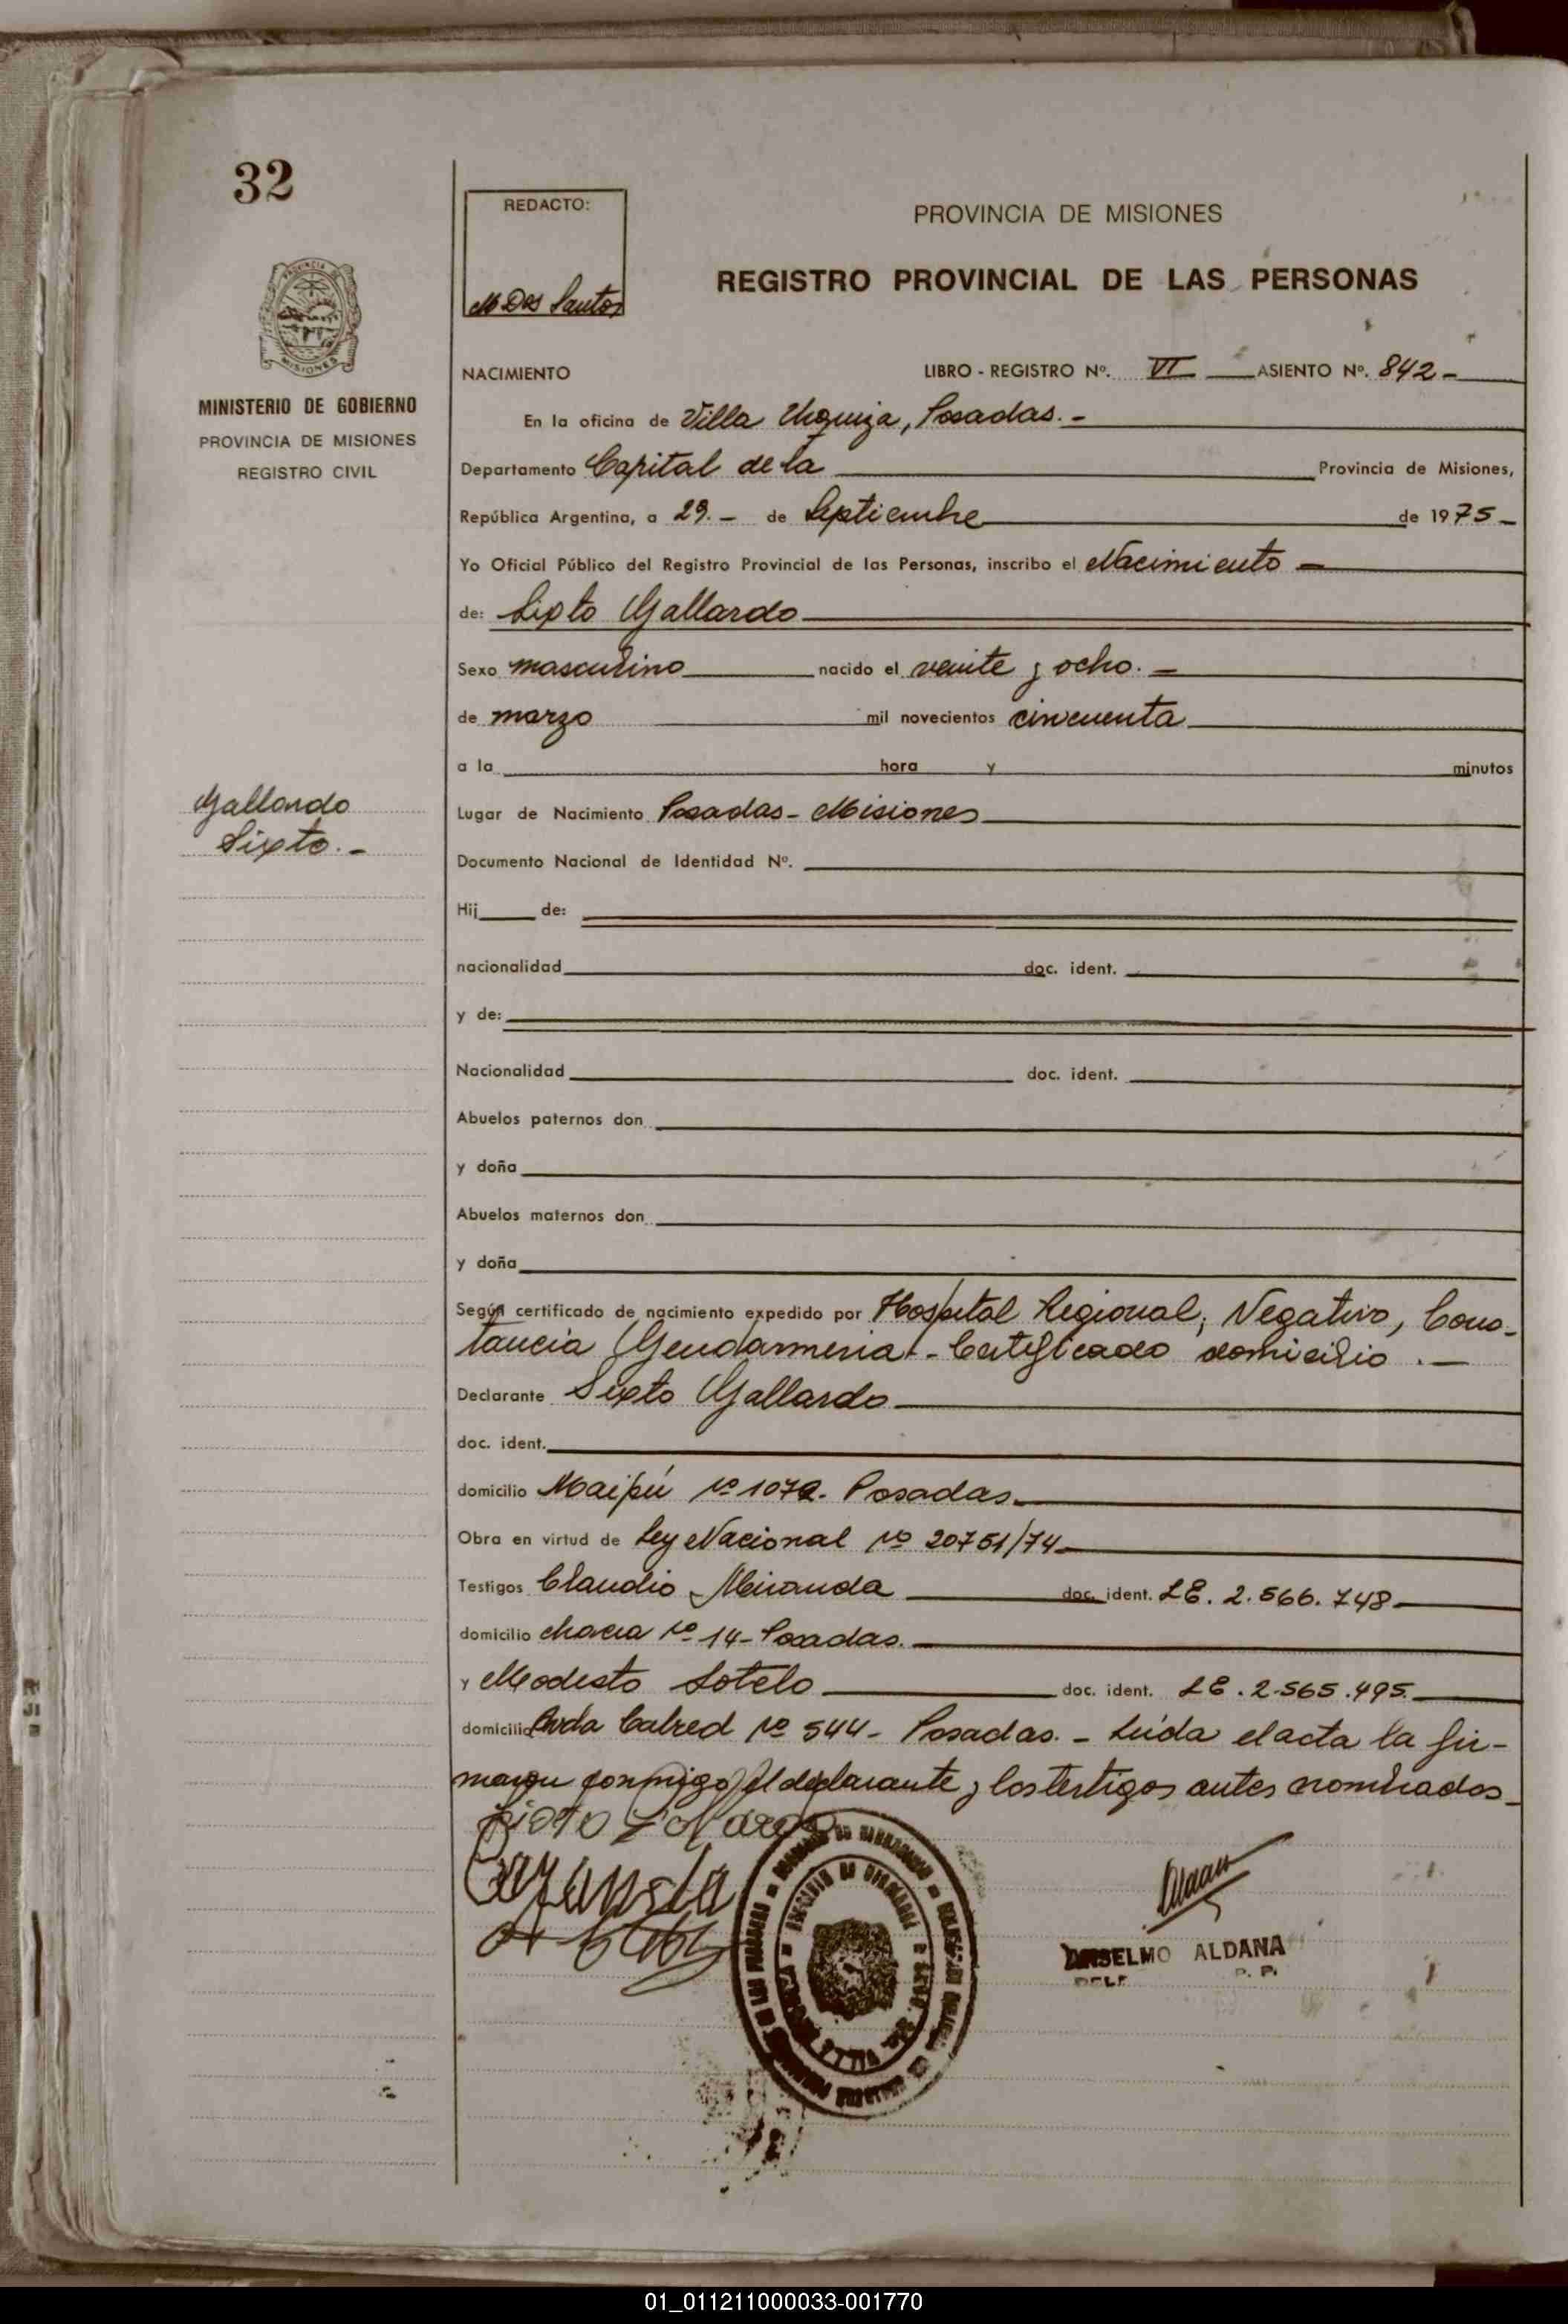 32
REDACTO:
M Dos Santos
PROVINCIA DE MISIONES
REGISTRO PROVINCIAL DE LAS PERSONAS
PROVINCIA DE
MISIONES
MINISTERIO DE GOBIERNO
PROVINCIA DE MISIONES
REGISTRO CIVIL
NACIMIENTO LIBRO - REGISTRO Nº. VI ASIENTO Nº. 842 -
En la oficina de Villa Urquiza, Posadas. -
Departamento Capital de la Provincia de Misiones,
República Argentina, a 29. - de Septiembre de 1975 -
Yo Oficial Público del Registro Provincial de las Personas, inscribo el Nacimiento -
de: Sixto Gallardo
Sexo masculino nacido el veinte y ocho. -
de marzo mil novecientos cincuenta
a la hora y minutos
Gallardo
Sixto. -
Lugar de Nacimiento Posadas - Misiones
Documento Nacional de Identidad Nº.
Hij de:
nacionalidad doc. ident.
y de:
Nacionalidad doc. ident.
Abuelos paternos don
y doña
Abuelos maternos don
y doña
Según certificado de nacimiento expedido por Hospital Regional, Negativo, Cons-
tancia Gendarmeria. - Certificado domicilio . -
Declarante Sixto Gallardo
doc. ident.
domicilio Maipú Nº 1072. Posadas.
Obra en virtud de Ley Nacional Nº 20751/74
Testigos Claudio Miranda doc. ident. LE. 2.566.748
domicilio chacra Nº 14 - Posadas.
y Modesto Sotelo doc. ident. LE. 2.565.495.
domicilio Avda Cabred Nº 544 - Posadas. - Leída el acta la fir-
maron conmigo el declarante y los testigos antes nombrados
ANSELMO ALDANA
01_011211000033-001770